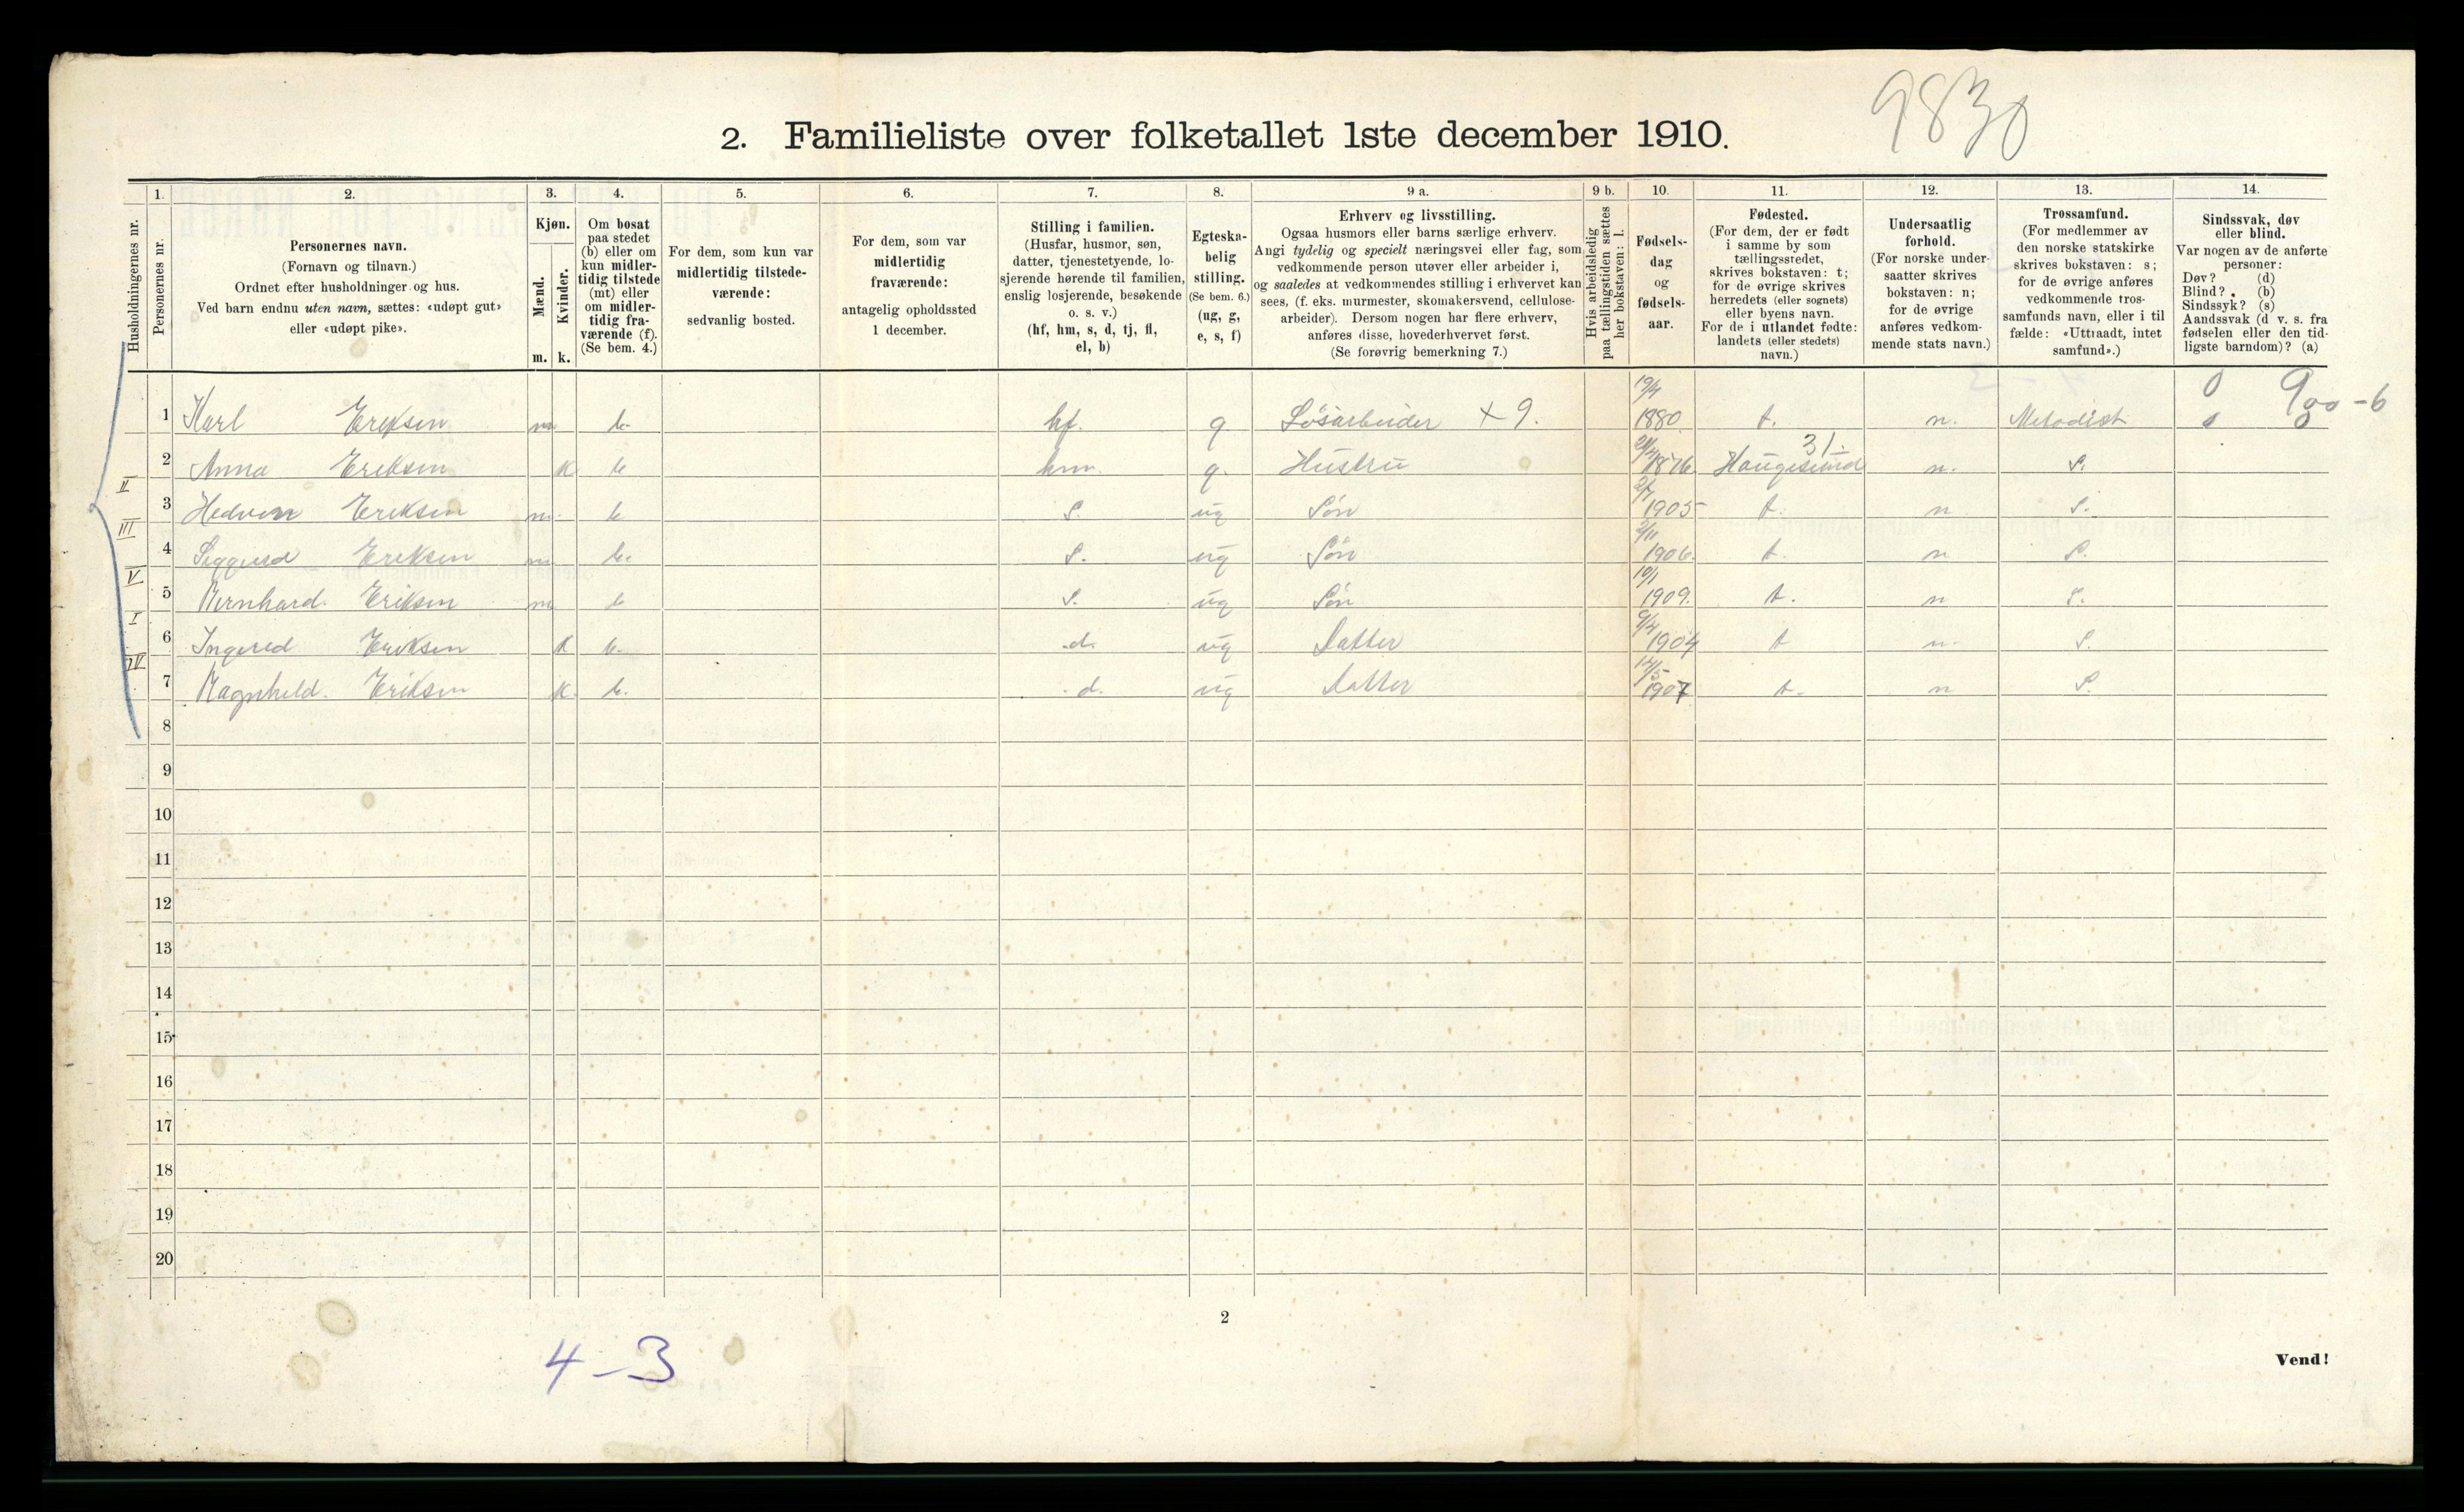 9830
2. Familieliste over folketallet 1ste december 1910.
1. 2. 3. 4. 5. 6. 7. 8. 9 a. 9 b. 10. 11. 12. 13. 14.
Husholdningernes nr.
Personernes nr.
Personernes navn.
(Fornavn og tilnavn.)
Ordnet efter husholdninger og hus.
Ved barn endnu uten navn, sættes: «udøpt gut»
eller «udøpt pike».
Kjøn.
Mænd.
Kvinder.
m. k.
Om bosat
paa stedet
(b) eller om
kun midler-
tidig tilstede
(mt) eller
om midler-
tidig fra-
værende (f).
(Se bem. 4.)
For dem, som kun var
midlertidig tilstede-
værende:
sedvanlig bosted.
For dem, som var
midlertidig
fraværende:
antagelig opholdssted
1 december.
Stilling i familien.
(Husfar, husmor, søn,
datter, tjenestetyende, lo-
sjerende hørende til familien,
enslig losjerende, besøkende
o. s. v.)
(hf, hm, s, d, tj, fl,
el, b)
Egteska-
belig
stilling.
(Se bem. 6.)
(ug, g,
e, s, f)
Erhverv og livsstilling.
Ogsaa husmors eller barns særlige erhverv.
Angi tydelig og specielt næringsvei eller fag, som
vedkommende person utøver eller arbeider i,
og saaledes at vedkommendes stilling i erhvervet kan
sees, (f. eks. murmester, skomakersvend, cellulose-
arbeider). Dersom nogen har flere erhverv,
anføres disse, hovederhvervet først.
(Se forøvrig bemerkning 7.)
Hvis arbeidsledig
paa tællingstiden sættes
her bokstaven: l.
Fødsels-
dag
og
fødsels-
aar.
Fødested.
(For dem, der er født
i samme by som
tællingsstedet,
skrives bokstaven: t;
for de øvrige skrives
herredets (eller sognets)
eller byens navn.
For de i utlandet fødte:
landets (eller stedets)
navn.)
Undersaatlig
forhold.
(For norske under-
saatter skrives
bokstaven: n;
for de øvrige
anføres vedkom-
mende stats navn.)
Trossamfund.
(For medlemmer av
den norske statskirke
skrives bokstaven: s;
for de øvrige anføres
vedkommende tros-
samfunds navn, eller i til
fælde: «Uttraadt, intet
samfund».)
Sindssvak, døv
eller blind.
Var nogen av de anførte
personer:
Døv? (d)
Blind? (b)
Sindssyk? (s)
Aandssvak (d v. s. fra
fødselen eller den tid-
ligste barndom)? (a)
1 Karl Eriksen m b. hf. g Løsarbeider + 9. 19/4 1880. t. n. Metodist
2 Anna Eriksen k b hm. g. Hustru 1876 Haugesund 31. n. S.
II 3 Eriksen m. b S. ug Søn 1905 t. n S.
III 4 Eriksen m b. S. ug Søn 2/11 1906. t. n S.
V 5 Bernhard. Eriksen m b S. ug Søn 10/1 1909. t. n S.
I 6 Ingerid Eriksen k b. d. ug Datter 9/4 1904 t n. S.
IV 7 Ragnhild. Eriksen k. b. d. ug Datter 1907 t. n S.
8
9
10
11
12
13
14
15
16
17
18
19
20
2
4 - 3
Vend!